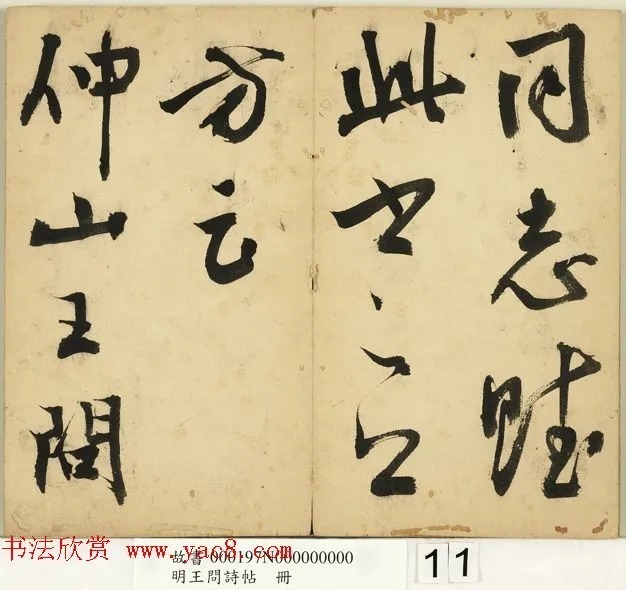 同志賦
此
仲山王問
书法欣赏 www.yac8.com
故書 000197N000000000
明王問詩帖 冊
11